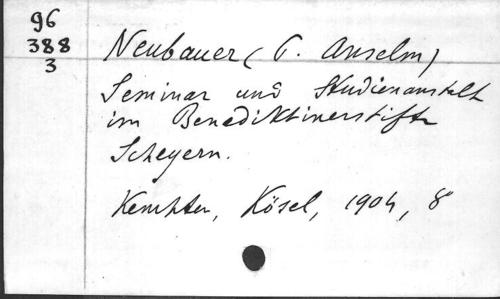 96
388
3
Neubauer (P. Anselm)
Seminar und Studienanstalt
im Benediktinerstifte
Scheyern.
Kempten, Kösel, 1904, 8